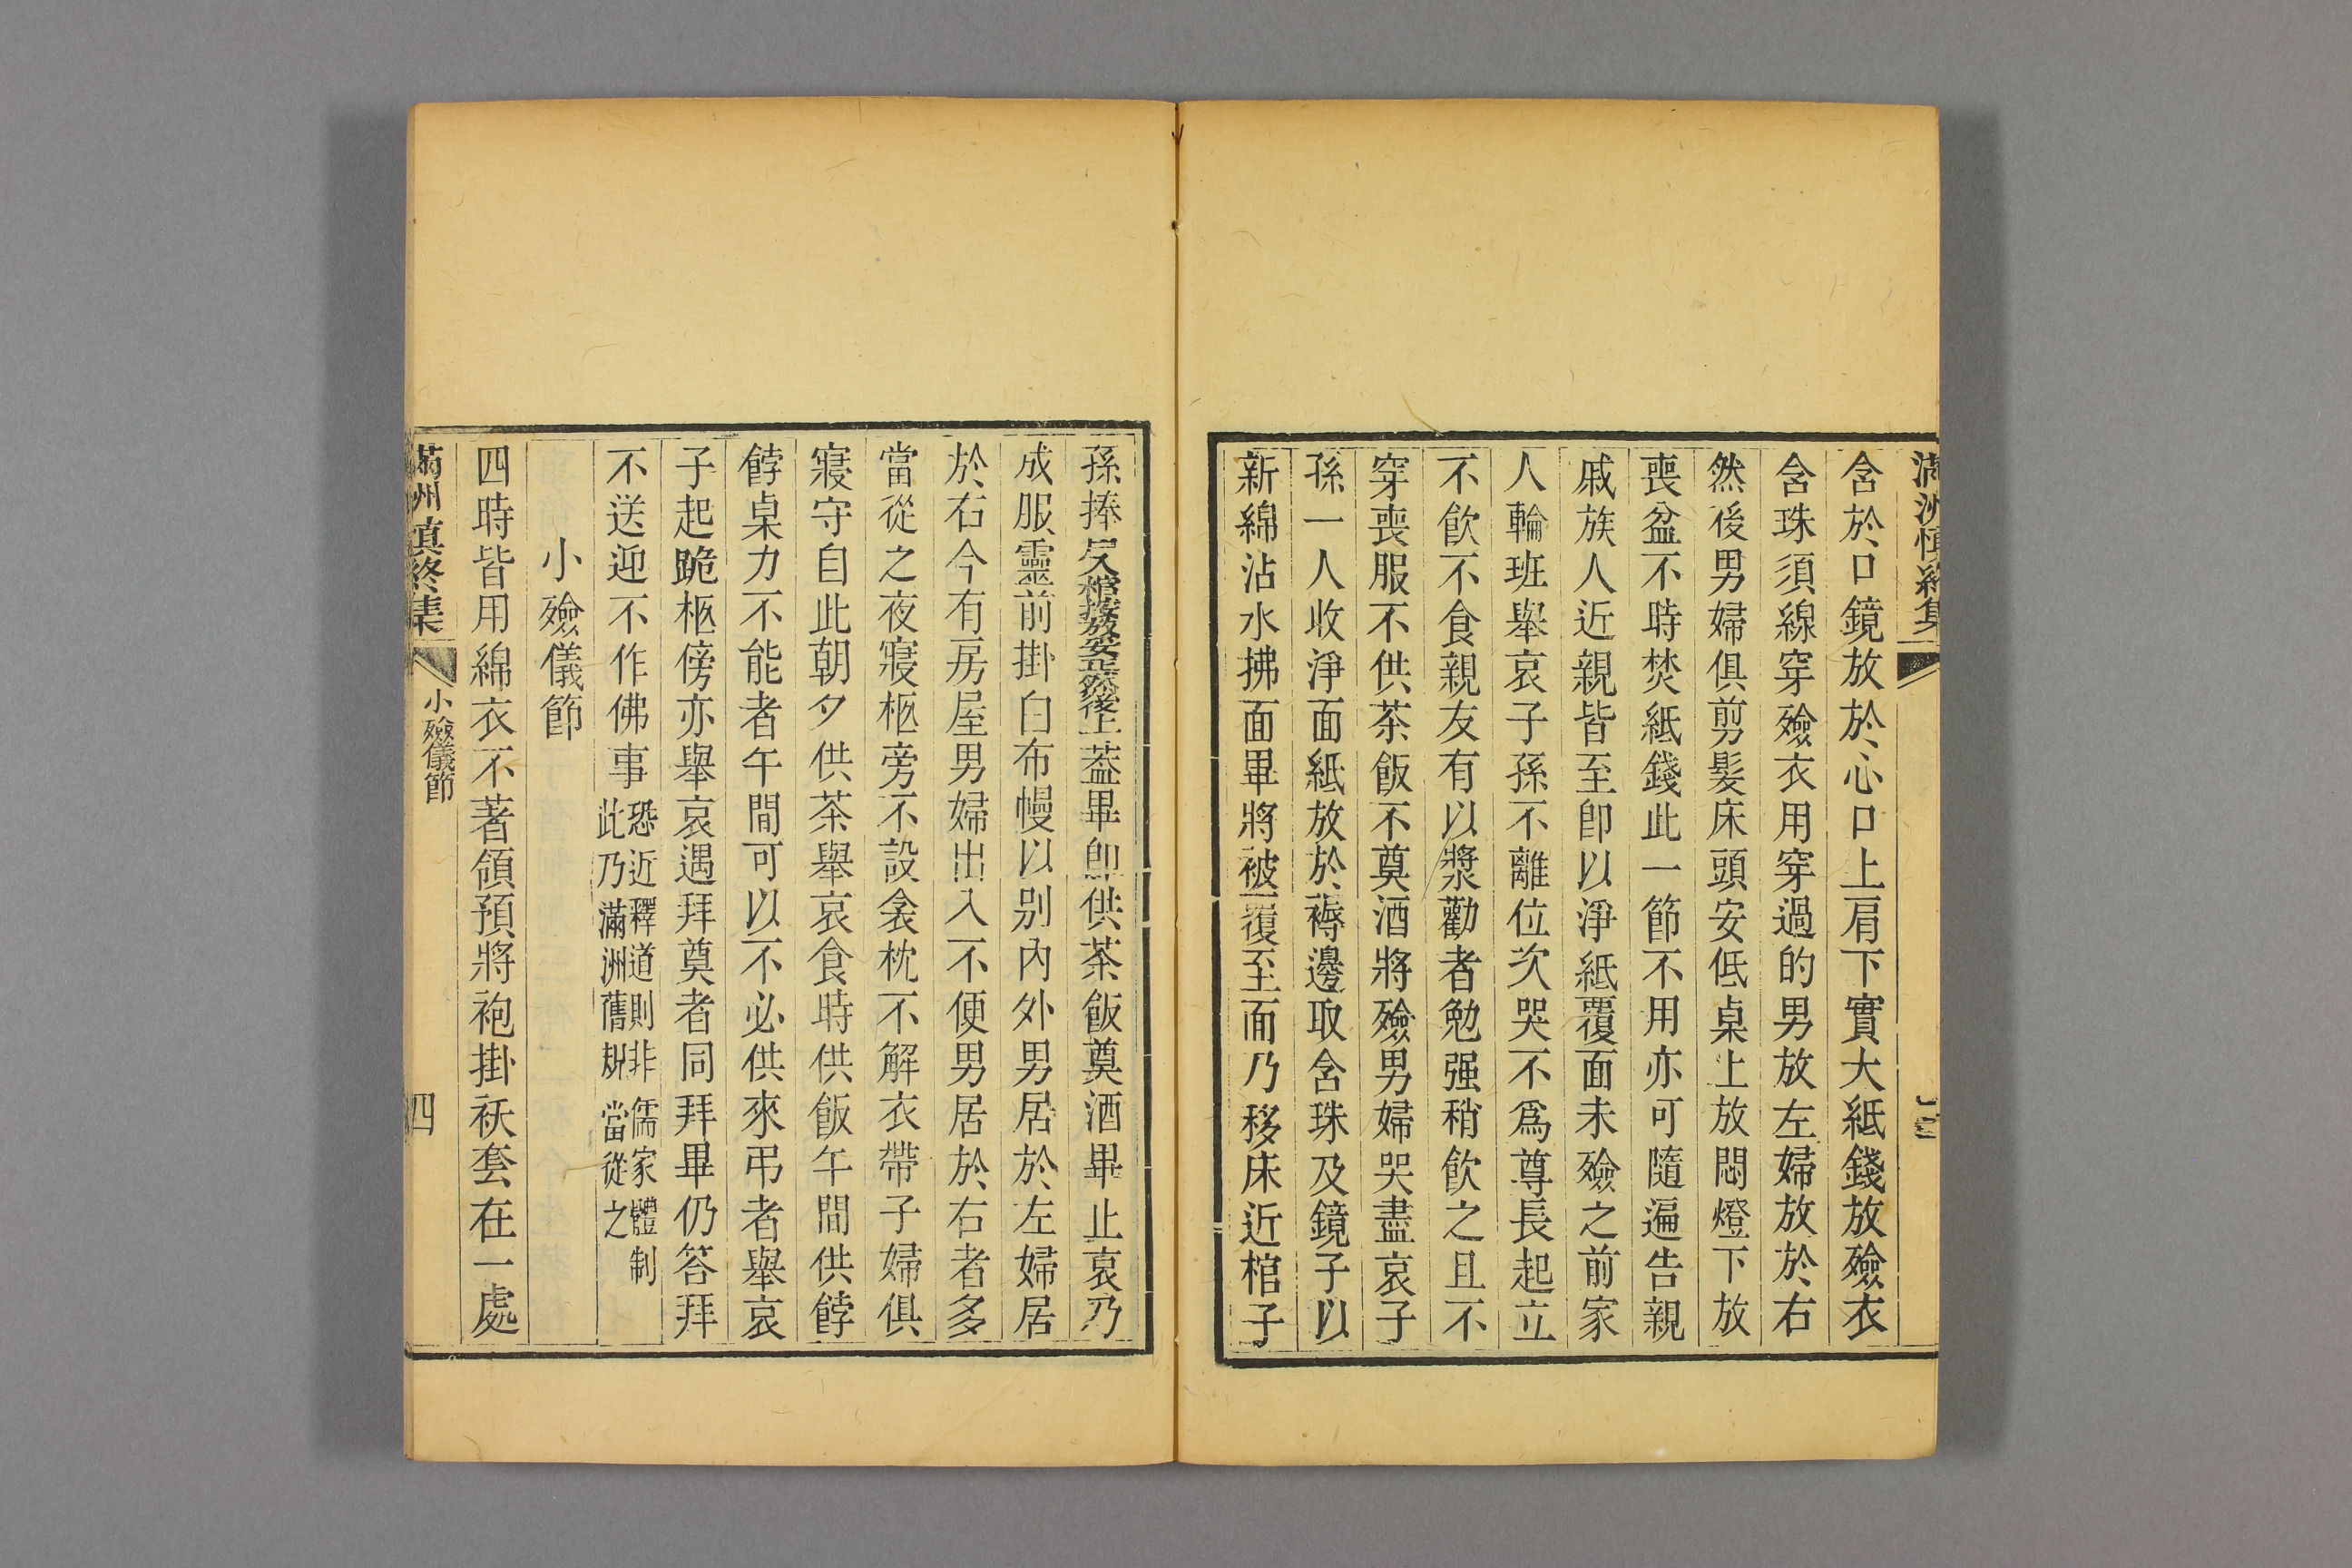 滿洲慎終集
含於口鏡放於心口上肩下實大紙錢放殮衣
含珠須線穿殮衣用穿過的男放左婦放於右
然後男婦俱剪髮床頭安低桌上放悶燈下放
喪盆不時焚紙錢此一節不用亦可隨遍告親
戚族人近親皆至卽以淨紙覆面未殮之前家
人輪班舉哀子孫不離位次哭不爲尊長起立
不飮不食親友有以漿勸者勉强稍飮之且不
穿喪服不供茶飯不奠酒將殮男婦哭盡哀子
孫一人收淨面紙放於褥邊取含珠及鏡子以
新綿沾水拂面畢將被覆至面乃移床近棺子
孫捧尸入棺按放妥正然後上葢畢卽供茶飯奠酒畢止哀乃
成服靈前掛白布幔以别內外男居於左婦居
於右今有房屋男婦出入不便男居於右者多
當從之夜寢柩旁不設衾枕不解衣帶子婦俱
寢守自此朝夕供茶舉哀食時供飯午間供餑
餑桌力不能者午間可以不必供來弔者舉哀
子起跪柩傍亦舉哀遇拜奠者同拜畢仍答拜
不送迎不作佛事恐近釋道則非儒家體制
此乃滿洲舊規當從之
小殮儀節
四時皆用綿衣不著領預將袍掛袄套在一處
滿州慎終集
小殮儀節
四